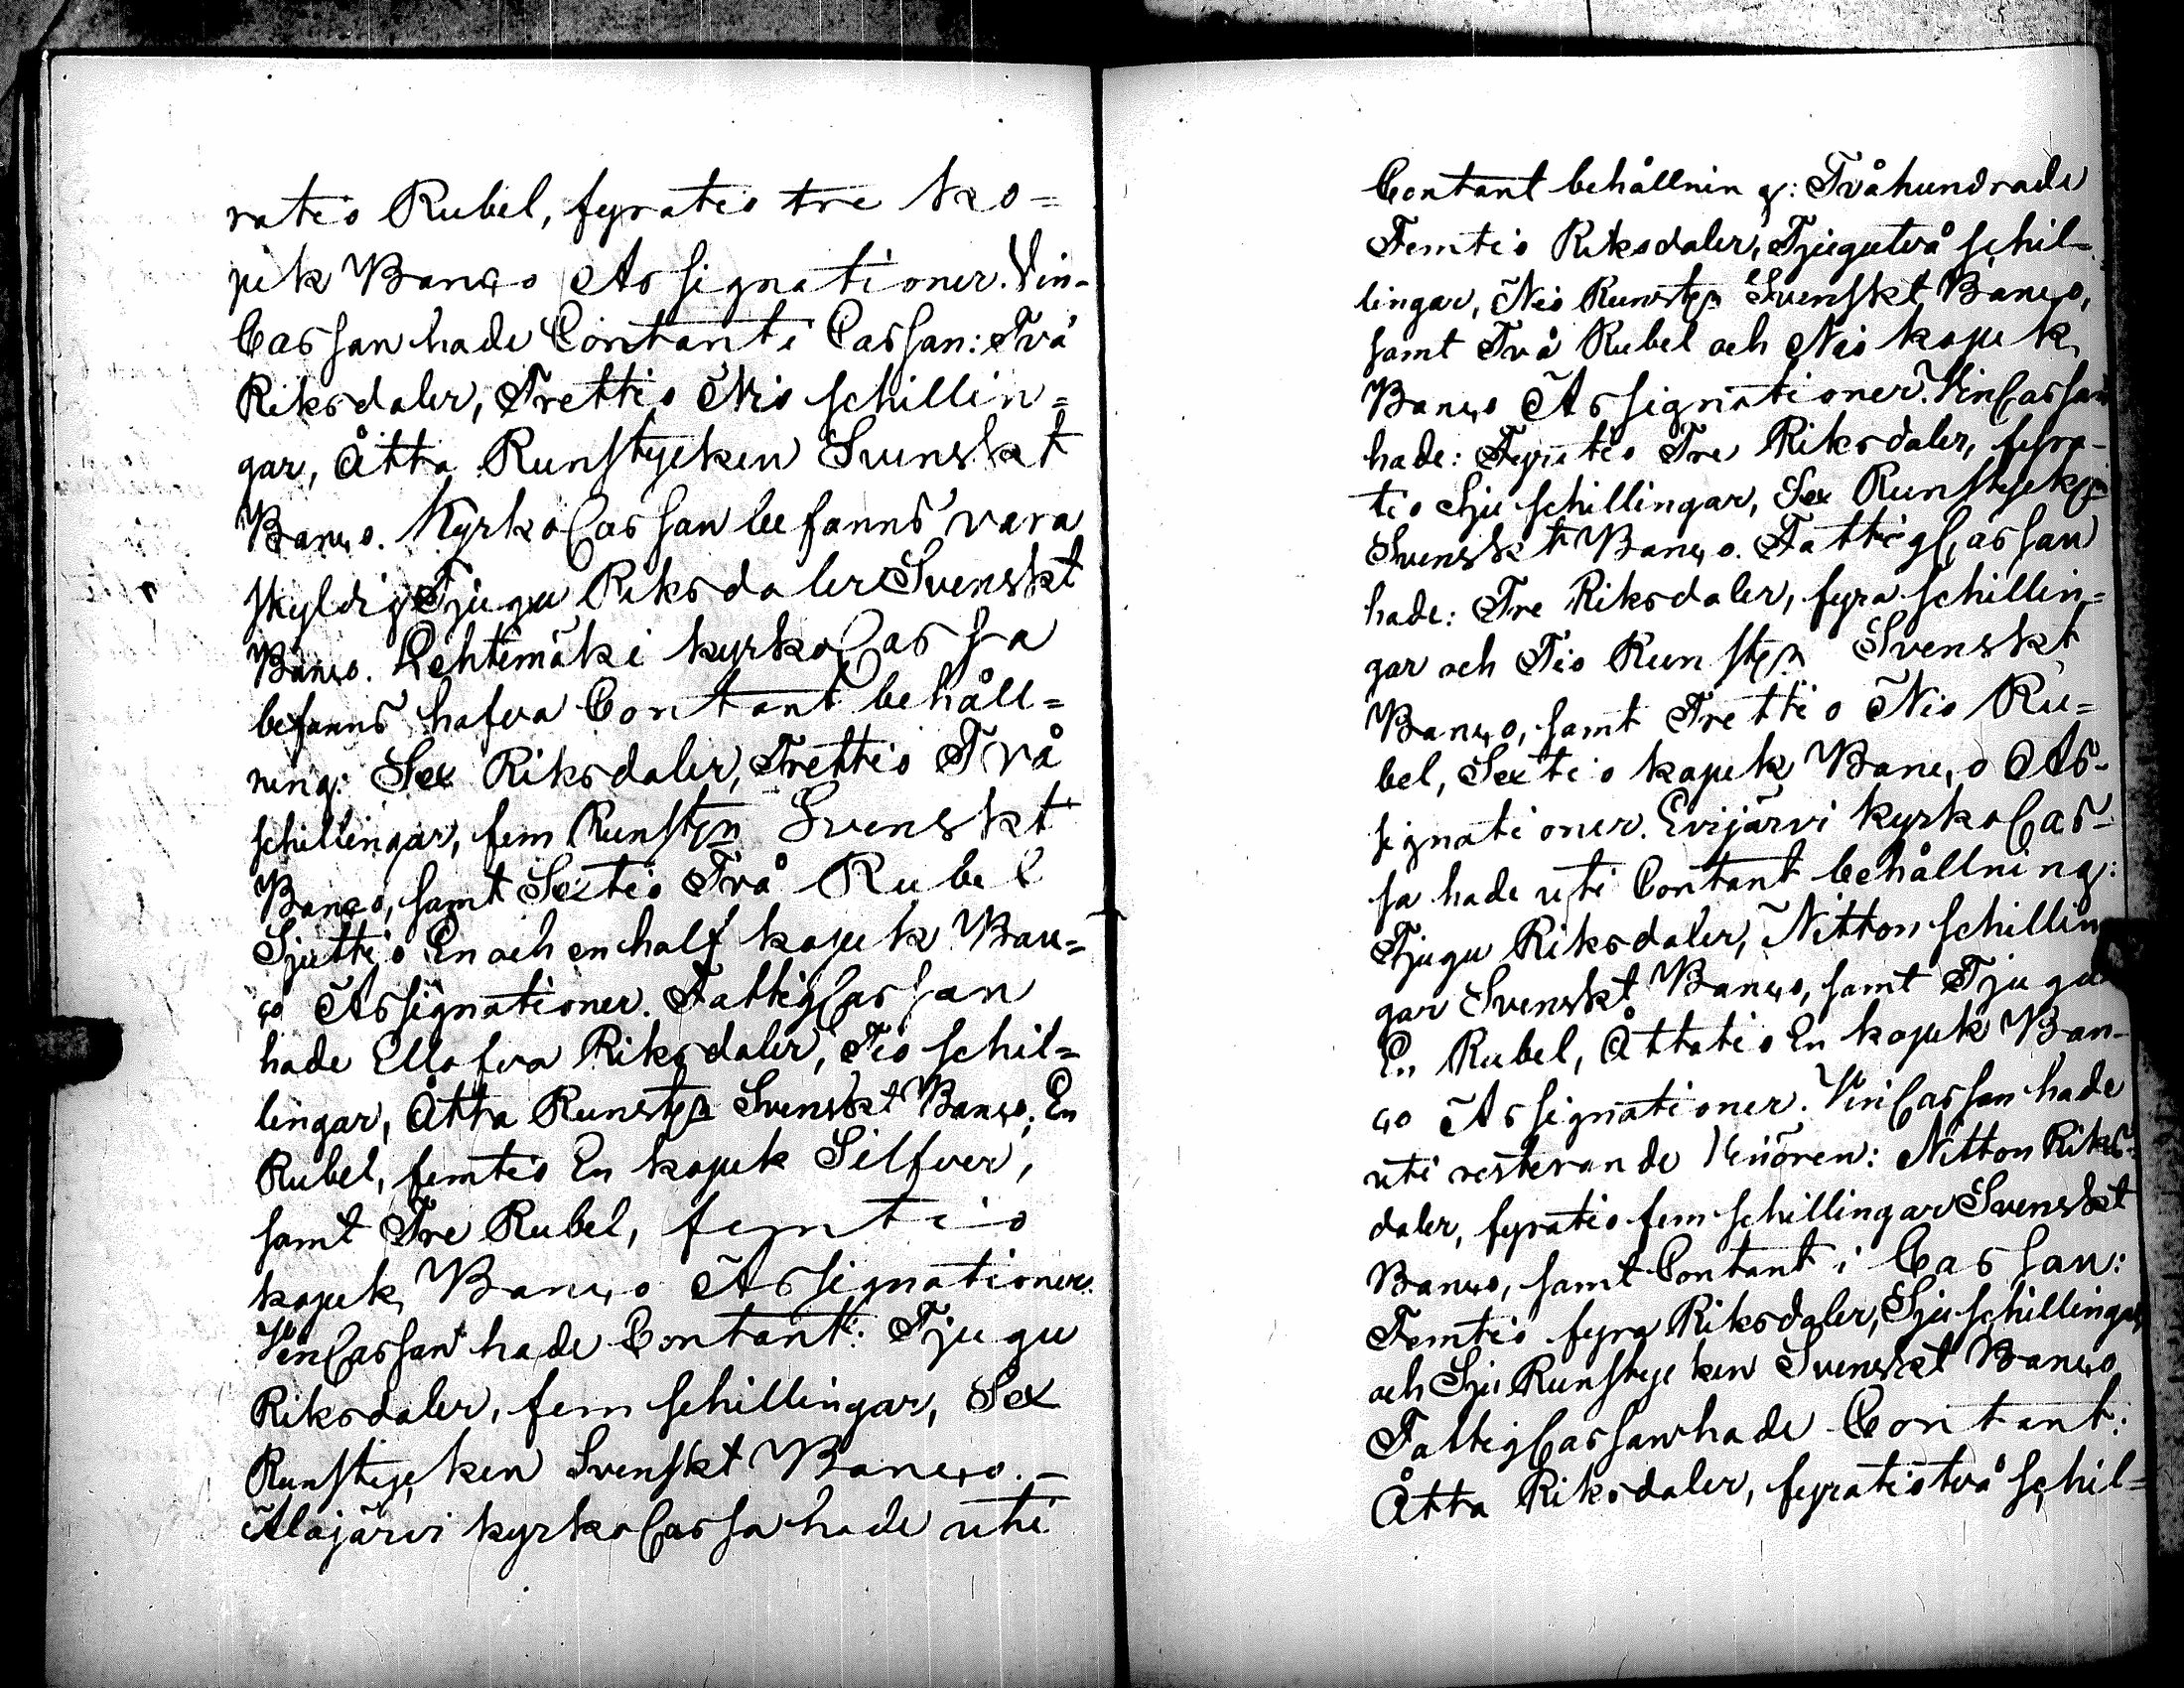 ratio Rubel, fyratio tre ko=
pek Banco Assignationer. Vin-
Cassan hade Contant i Cassan: Två
Riksdaler, Trettio Nio schillin=
gar, Åtta Runstycken Svenskt
Banco. KyrkoCassan befanns vara
skyldig Tjugu Riksdaler Svenskt
Banco. Lehtimäki kyrkoCassa
befanns hafva Contant behåll=
ning: Sex Riksdaler, Trettio Två
schillingar, fem Runstyn Svenskt
Banco, samt Sextio Två Rubel
Sjuttio En och en half kopek Ban=
co Assignationer. FattigCassan
hade Ellofva Riksdaler, Tio schil=
lingar, Åtta Runstyn Svenskt Banco; En
Rubel, femtio En kopek Silfver,
samt Tre Rubel, femtio
kopek Banco Assignationer.
VinCassan hade Contant: Tjugu
Riksdaler, fem schillingar, Sex
Runstycken Svenskt Banco. –
Alajärvi kyrkoCassa hade uti
Contant behållning: Tvåhundrade
Femtio Riksdaler, Tjugutvå schil-
lingar, Nio Runstyn Svenskt Banco,
samt Två Rubel och Nio kopek
Banco Assignationer. VinCassan
hade: Fyratio Tre Riksdaler, fyra-
tio Sju schillingar, Sex Runstycken
Svenskt Banco. FattigCassan
hade: Tre Riksdaler, fyra schillin=
gar och Tio Runstyn Svenskt
Banco, samt Trettio Nio Ru=
bel, Sextio kopek Banco As-
signationer. Evijärvi kyrkoCas-
sa hade uti Contant behållning:
Tjugu Riksdaler, Nitton schillin
gar Svenskt Banco, samt Tjugu
En Rubel, Åttatio En kopek Ban-
co Assignationer. VinCassan hade
uti resterande Vinören: Nitton Riks-
daler, fyratio fem schillingar Svenskt
Banco, samt Contant i Cassan:
Femtio fyra Riksdaler, Sju schillingar,
och Sju Runstycken Svenskt Banco
FattigCassan hade Contant:
Åtta Riksdaler, fyratiotvå schil=